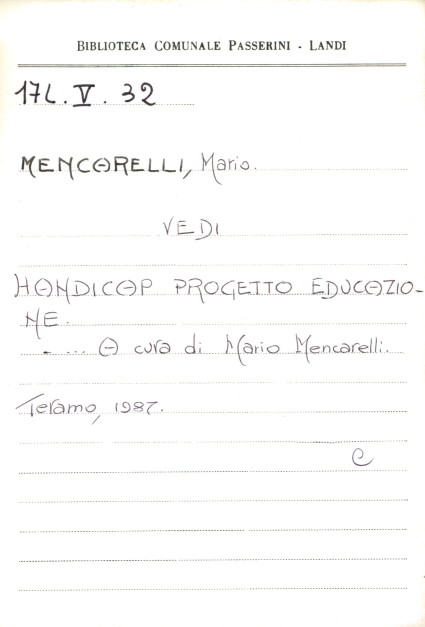 BIBLIOTECA COMUNALE PASSERINI - LANDI
17L.V.32
MENCARELLI, Mario.
VEDI
HANDICAP PROGETTO EDUCAZIO-
NE.
- ... A cura di Mario Mencarelli.
Teramo, 1987.
C